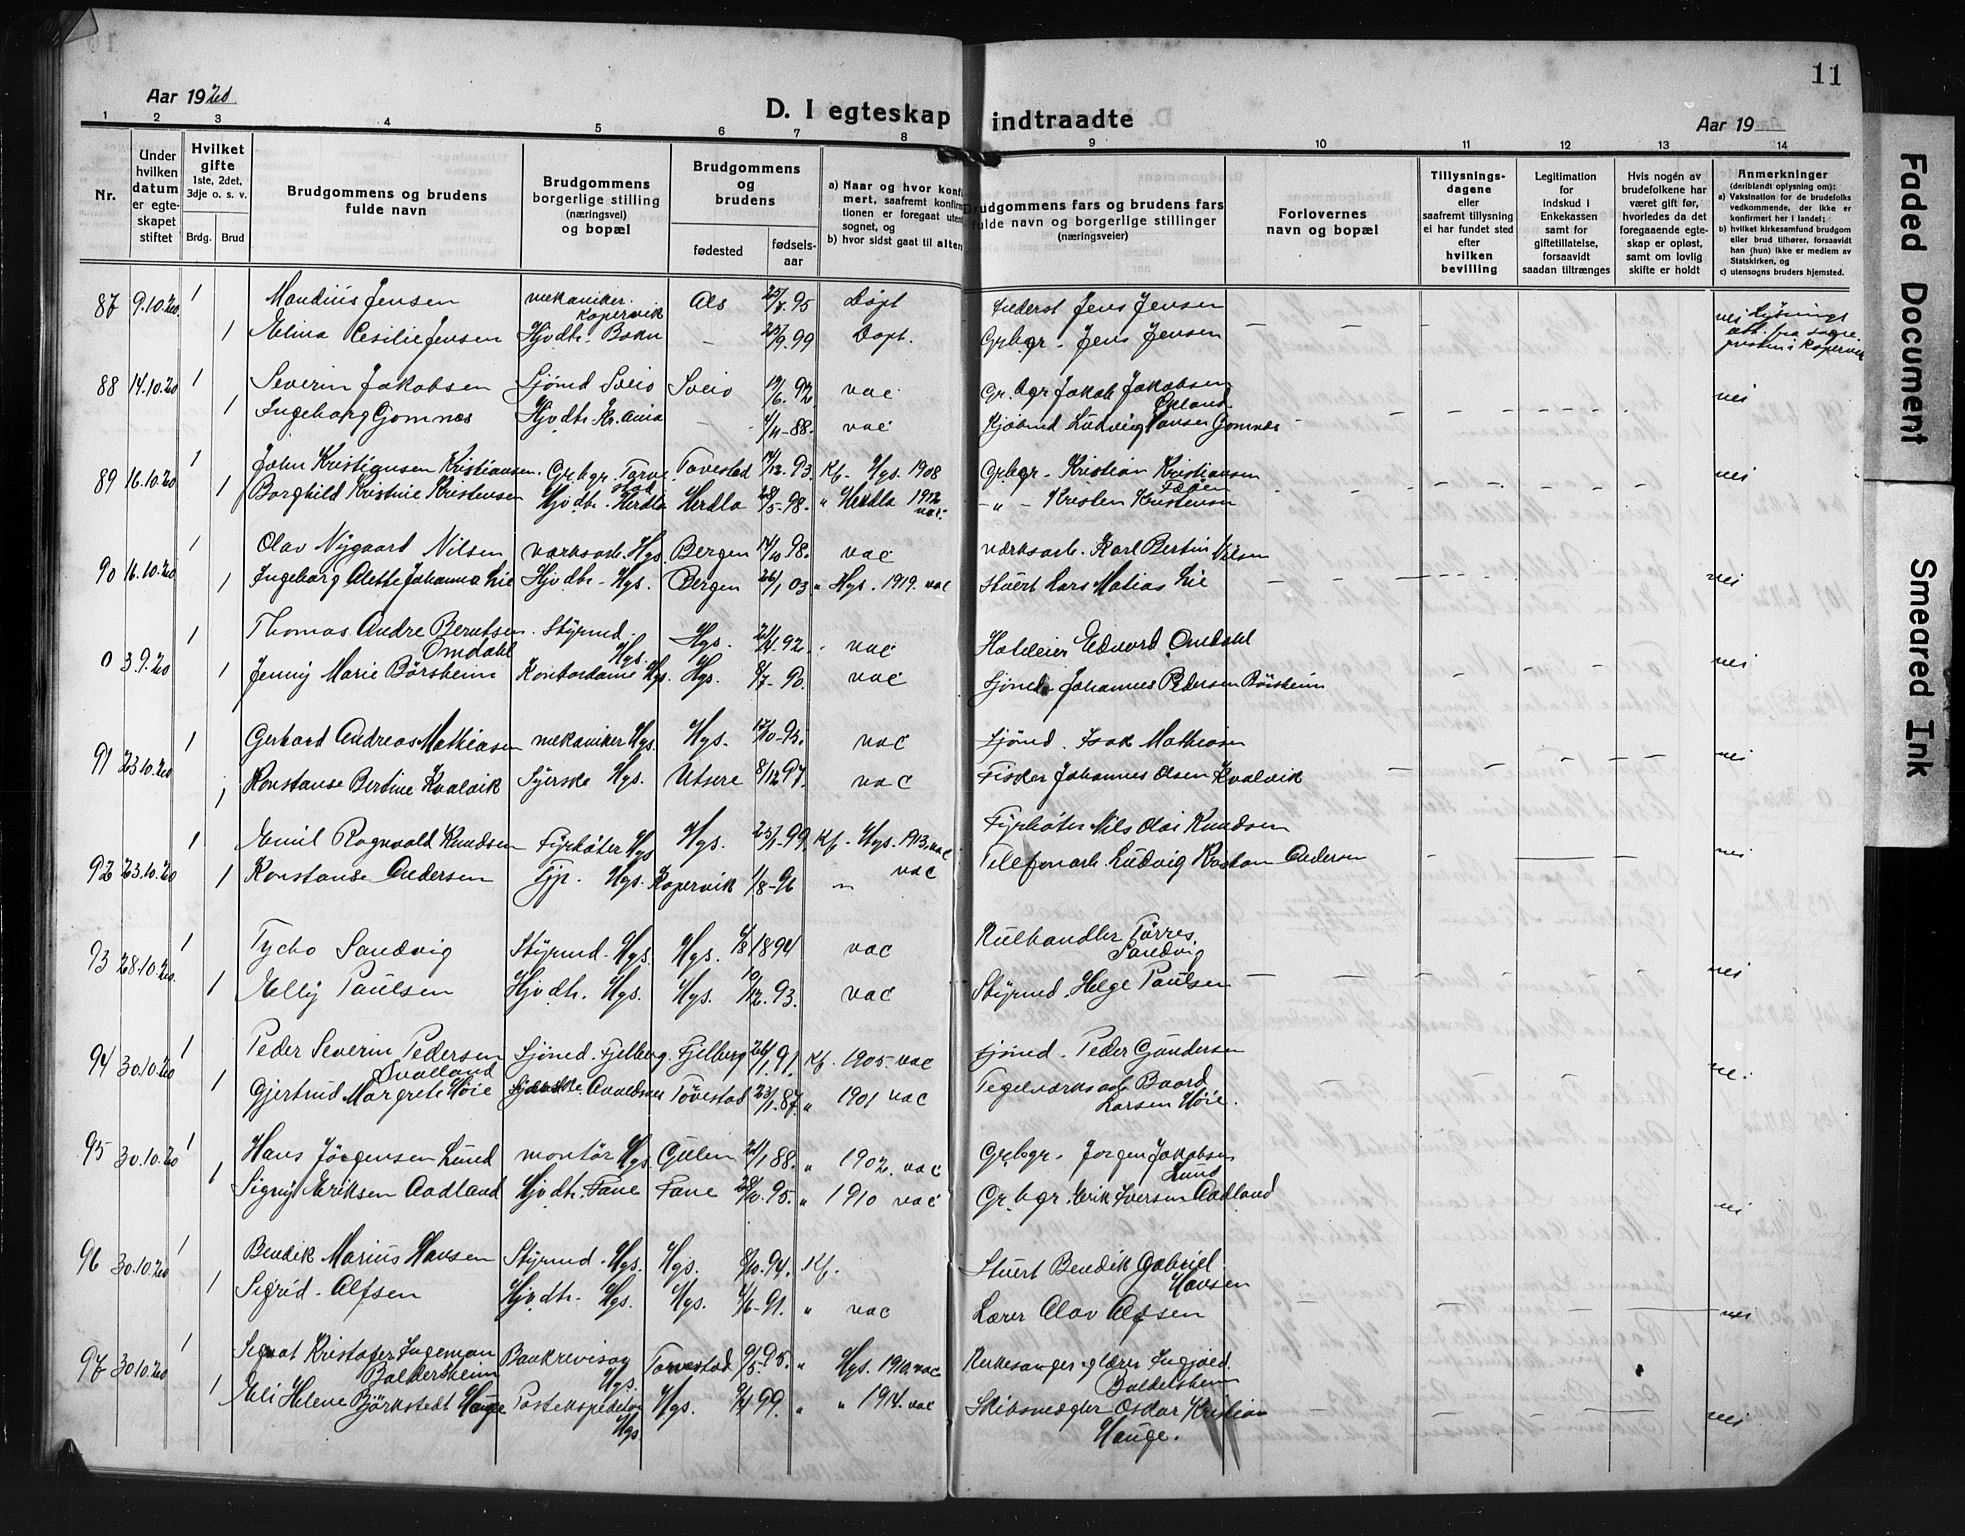 11
Aar 1920
D. I egteskap indtraadte
Aar 19
1 2 3 4 5 6 7 8 9 10 11 12 13 14
Nr.
Under hvilken datum er egteskapet stiftet
Hvilket gifte 1ste, 2det, 3dje o. s. v.
Brdg. Brud
Brudgommens og brudens fulde navn
Brudgommens borgerlige stilling (næringsvei) og bopæl
Brudgommens og brudens
fødested
fødselsaar
a) Naar og hvor konfirmert, saafremt konfirmationen er foregaat utenfor sognet, og
b) hvor sidst gaat til alters
Brudgommens fars og brudens fars fulde navn og borgerlige stillinger (næringsveier)
Forlovernes navn og bopæl
Tillysningsdagene eller saafremt tillysning ei har fundet sted efter hvilken bevilling
Legitimation for indskud i Enkekassen samt for giftetillatelse, forsaavidt saadan tiltrænges
Hvis nogen av brudefolkene har været gift før, hvorledes da det foregaaende egteskap er opløst, samt om lovlig skifte er holdt
Anmerkninger (deriblandt oplysning om):
a) Vaksination for de brudefolks vedkommende, der ikke er konfirmert her i landet;
b) hvilket kirkesamfund brudgom eller brud tilhører, forsaavidt han (hun) ikke er medlem av Statskirken, og
c) utensogns bruders hjemsted.
87 9.10.20 1 Jensen mekaniker Kopervik Als 25/7.95 Døpt Jens Jensen nei
1 Elina Cesilie Jensen Hjvdtr. Bokn - 25/9.99 Døpt. Grbgr. Jens Jensen
88 14.10.20 1 Severin Jakobsen Sjømd Sveio Sveio 92 vac Gr.bgr Jakob Jakobsen nei
1 Ingeborg Gomnæs Hjvdtr. - 4/11-88. vac Ludvig Hansen Gomnæs
89 16.10.20 1 John Kristiansen Kristiansen. Grbgr. Torvestad Torvestad 12.93 Kf. Hgs. 1908 Grbgr. Kristian Kristiansen nei
1 Borghild Kristine Kristensen Hjvdtr. Herdla Herdla 28/5-98. " Herdla 1912 vac. - " - Kristen Kristensen
90 16.10.20 1 Olav Nygaard Nilsen værksarb. Hgs. Bergen 14/10 98. vac værksarb. Karl Bertin Nilsen
1 Ingeborg Alette Johanna Lie Hjvdtr. Hgs. Bergen 26/1 03 " Hgs. 1919. vac Stuert Lars Matias Lie nei
0 3.9.20 1 Thomas Andre Berntsen Omdahl Styrmd. Hgs. Hgs. 92. vac Edvard Omdahl nei
1 Jenny Marie Börsheim Kontordame Hgs. Hgs. 8/7-90. vac Sjömd. Johannes Pedersen Börsheim
91 23.10.20 1 Gerhard Andreas Mathiasen mekaniker Hgs. Hgs. 17/10-93. vac Sjömd. Isak Mathiasen nei
1 Konstanse Bertine Kvalvik Syerske Hgs. Utsire 8/12 97. vac Fisker Johannes Olsen Kvalvik
92 23.10.20 1 Emil Ragnvald Knudsen Fyrbøter Hgs. Hgs. 25/1-99 Kf. Hgs. 1913. vac Fyrbøter Nils Olai Knudsen nei
1 Konstanse Andersen Tjp. Hgs. Kopervik 1/8-96 " vac Telefonarb. Ludvig Andersen
93 28.10.20 1 Tycho Sandvig Styrmd. Hgs. Hgs. 1894 vac Kulhandler Törres Sandvig nei
1 Elly Paulsen Hjvdtr. Hgs. Hgs. 10/12.93. vac Styrmd. Helge Paulsen
94 30.10.20 1 Peder Severin Pedersen Svalland Sjömd. Fjelberg. Fjelberg 26/1.91. Kf. 1905. vac Sjömd. Peder Gundersen nei
1 Gjertrud Margrete Höie Avaldsnes Torvestad 23/1.87. " 1901 vac Teglværksarb Baard Larsen Höie.
95 30.10.20 1 Hans Jörgensen Lund montör Hgs. Gulen 21/1 88. " 1902. vac Grbgr. Jorgen Jakobsen Lund
1 Signy Eriksen Aadland Hjvdtr. Fane Fane 95. " 1910 vac Gr.bgr. Erik Iversen Aadland nei
96 30.10.20 1 Bendik Marius Hansen Styrmd. Hgs. Hgs. 8/10.94. Kf. Stuert Bendik Gabriel Hansen
1 Sigrid Alfsen Hjvdtr. Hgs. Hgs. 91. " vac Lærer Olav Alfsen nei
97 30.10.20 1 Kristofer Ingeman Baldersheim Bankrevisor Hgs. Torvestad 9/5-95. " Hgs. 1910. vac Kirkesanger og lærer Baldersheim
1 Eli Helene Björkstedt Hauge Postekspeditør Hgs. Hgs. 99. " " 1914. vac Skibsmægler Oskar Kristian Hauge. nei
Faded Document
Smeared Ink